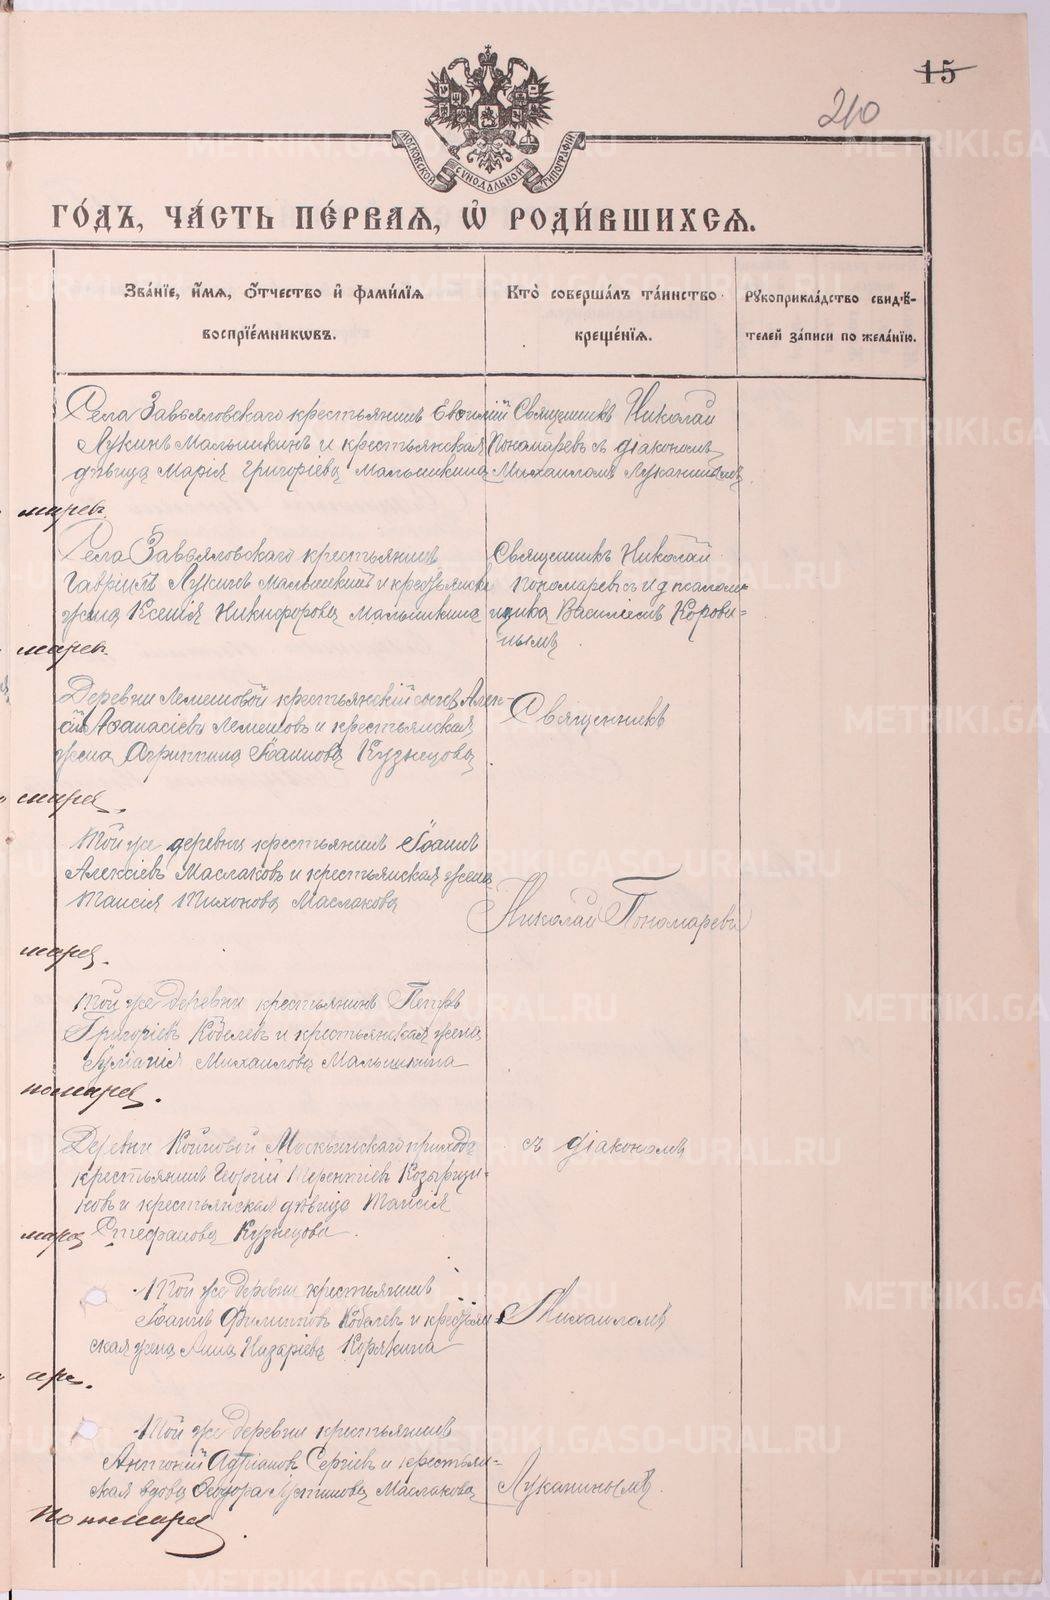 15
210
МОСКОВСКОЙ СѴНОДАЛЬНОЙ ТИПОГРАФІИ
ГО́ДЪ, ЧА́СТЬ ПЕ́РВАЯ, Ѡ҆ РОДИ́ВШИХСЯ.
Зва́нїе, и҆́мѧ, ѻ҆́тчество и҆ фами́лїѧ
воспрїе́мникѡвъ.
Кто̀ соверша́лъ та́инство
креще́нїѧ.
Рꙋкоприкла́дство свидѣ́-
телей за́писи по жела́нїю.
Села Завьяловскаго крестьянинъ Евфимій
Лукинъ Малышкинъ и крестьянская
дѣвица Марія Григоріева Малышкина
Священникъ Николай
Пономаревъ съ діакономъ
Михаиломъ Луканинымъ
Села Завьяловскаго крестьянинъ
Гавріилъ Лукинъ Малышкинъ и крестьянска
жена Ксенія Никифорова Малышкина
Священникъ Николай
Пономаревъ съ и д псалом
щика Василіемъ Корови-
нымъ
Деревни Лемешовой крестьянскій сынъ Алек-
сій Афанасіевъ Лемешовъ и крестьянская
жена Агриппина Іоаннова Кузнецова
Священникъ
Той же деревни крестьянинъ Іоаннъ
Алексіевъ Маслаковъ и крестьянская жена
Таисія Тихонова Маслакова
Николай Пономаревъ
Той же деревни крестьянинъ Петръ
Григоріевъ Кобелевъ и крестьянская жена
Іуліанія Михаилова Малышкина
пономарев
Деревни Койновой прихода
крестьянинъ Георгій Терентіевъ Козырщи-
ковъ и крестьянская дѣвица Таисія
Стефанова Кузнецова
съ діакономъ
Той же деревни крестьянинъ
Іоаннъ Филипповъ Кобелевъ и крестьян
ская жена Анна Назаріева Корякина
Михаиломъ
Той же деревни крестьянинъ
Антоній Адріановъ Сергіевъ и крестьян-
ская вдова Ѳеодора Устинова Маслакова
Луканинымъ.
Пономарев
METRIKI.GASO-URAL.RU